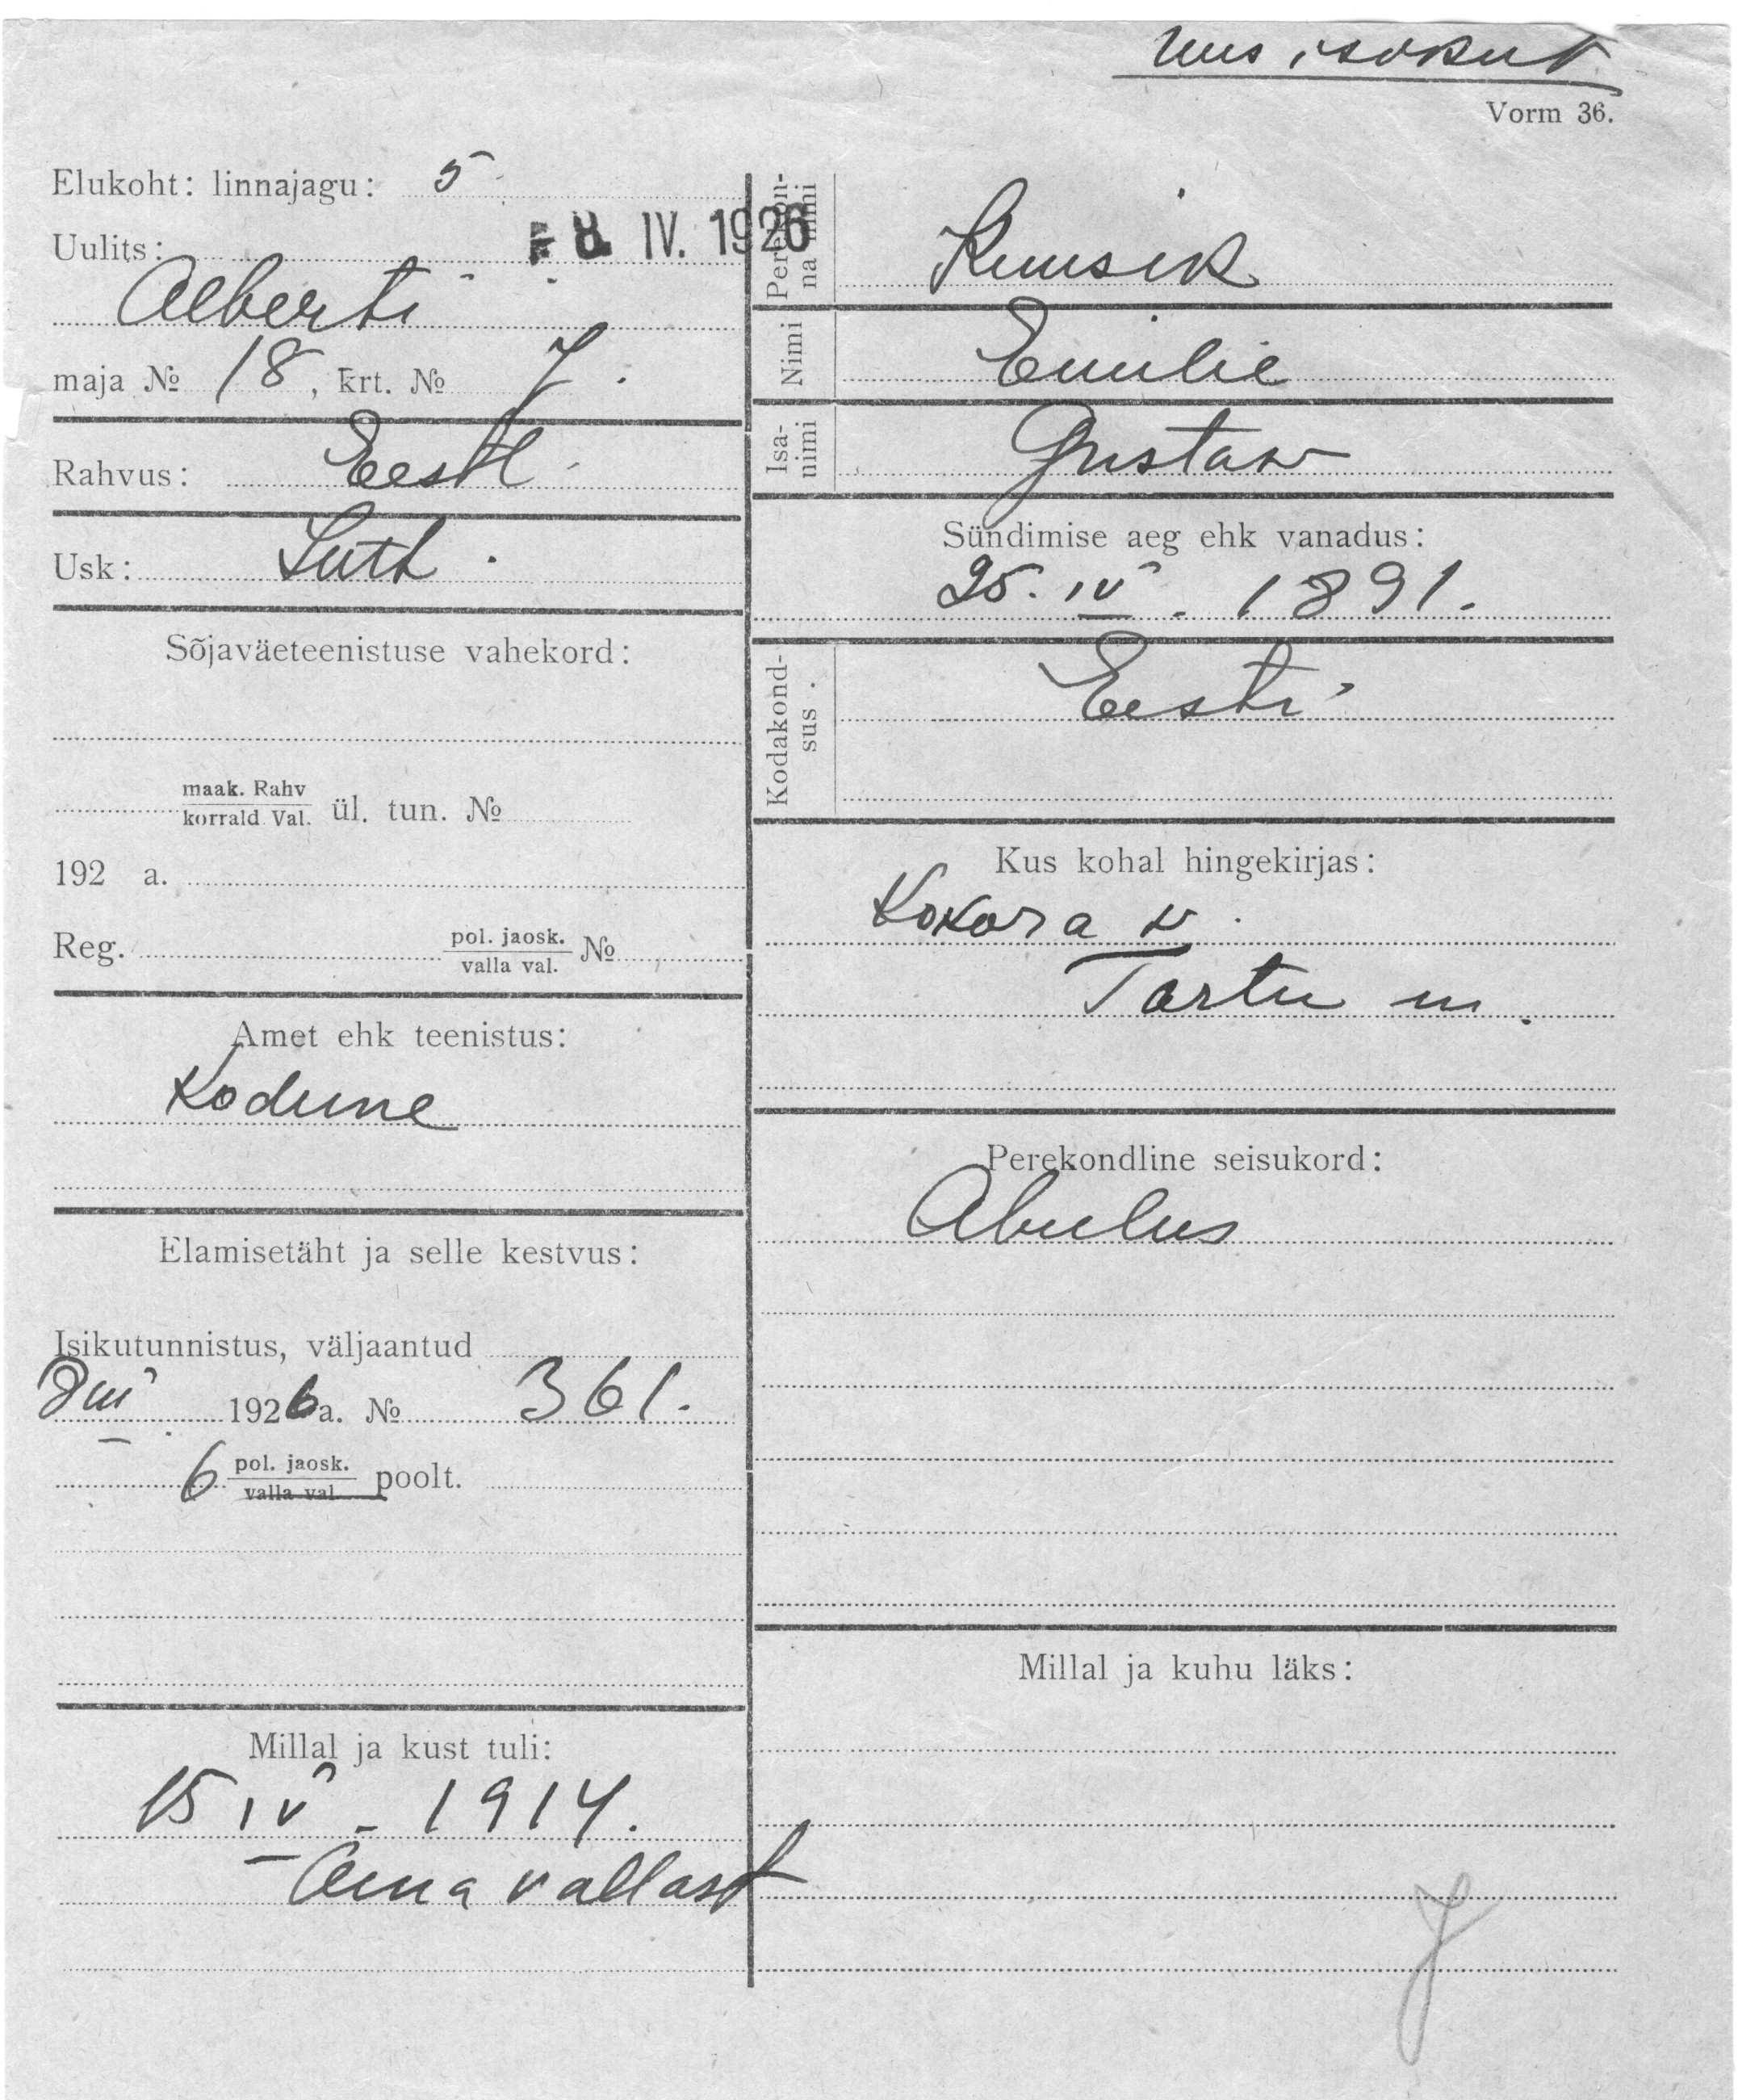 Uus isikut
Vorm 36.
Elukoht: linnajagu: 5
- 8. IV. 1926
Uulits:
Alberti
maja № 18, krt. № 7.
Rahvus: Eestl.
Usk: Luth.
Sõjaväeteenistuse vahekord:
maak. Rahv
korrald. Val. ül. tun. №
192 a.
Reg. pol. jaosk.
valla val. №
Amet ehk teenistus:
Kodune
Elamisetäht ja selle kestvus:
Isikutunnistus, väljaantud
8 III 1926 a. № 361.
6 pol. jaosk.
valla val poolt.
Millal ja kust tuli:
15 IV - 1914.
Oma vallast
Perekon-
na nimi
Kuusik
Nimi
Emilie
Isa-
nimi
Gustaw
Sündimise aeg ehk vanadus:
25. IV. 1891.
Kodakond-
sus.
Eesti
Kus kohal hingekirjas:
Kokora v.
Tartu m.
Perekondline seisukord:
Abielus
Millal ja kuhu läks: